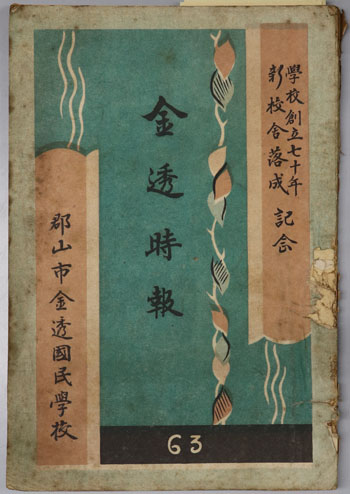 學校創立七十年
新校舍落成 記念
金透時報
郡山市金透國民學校
63